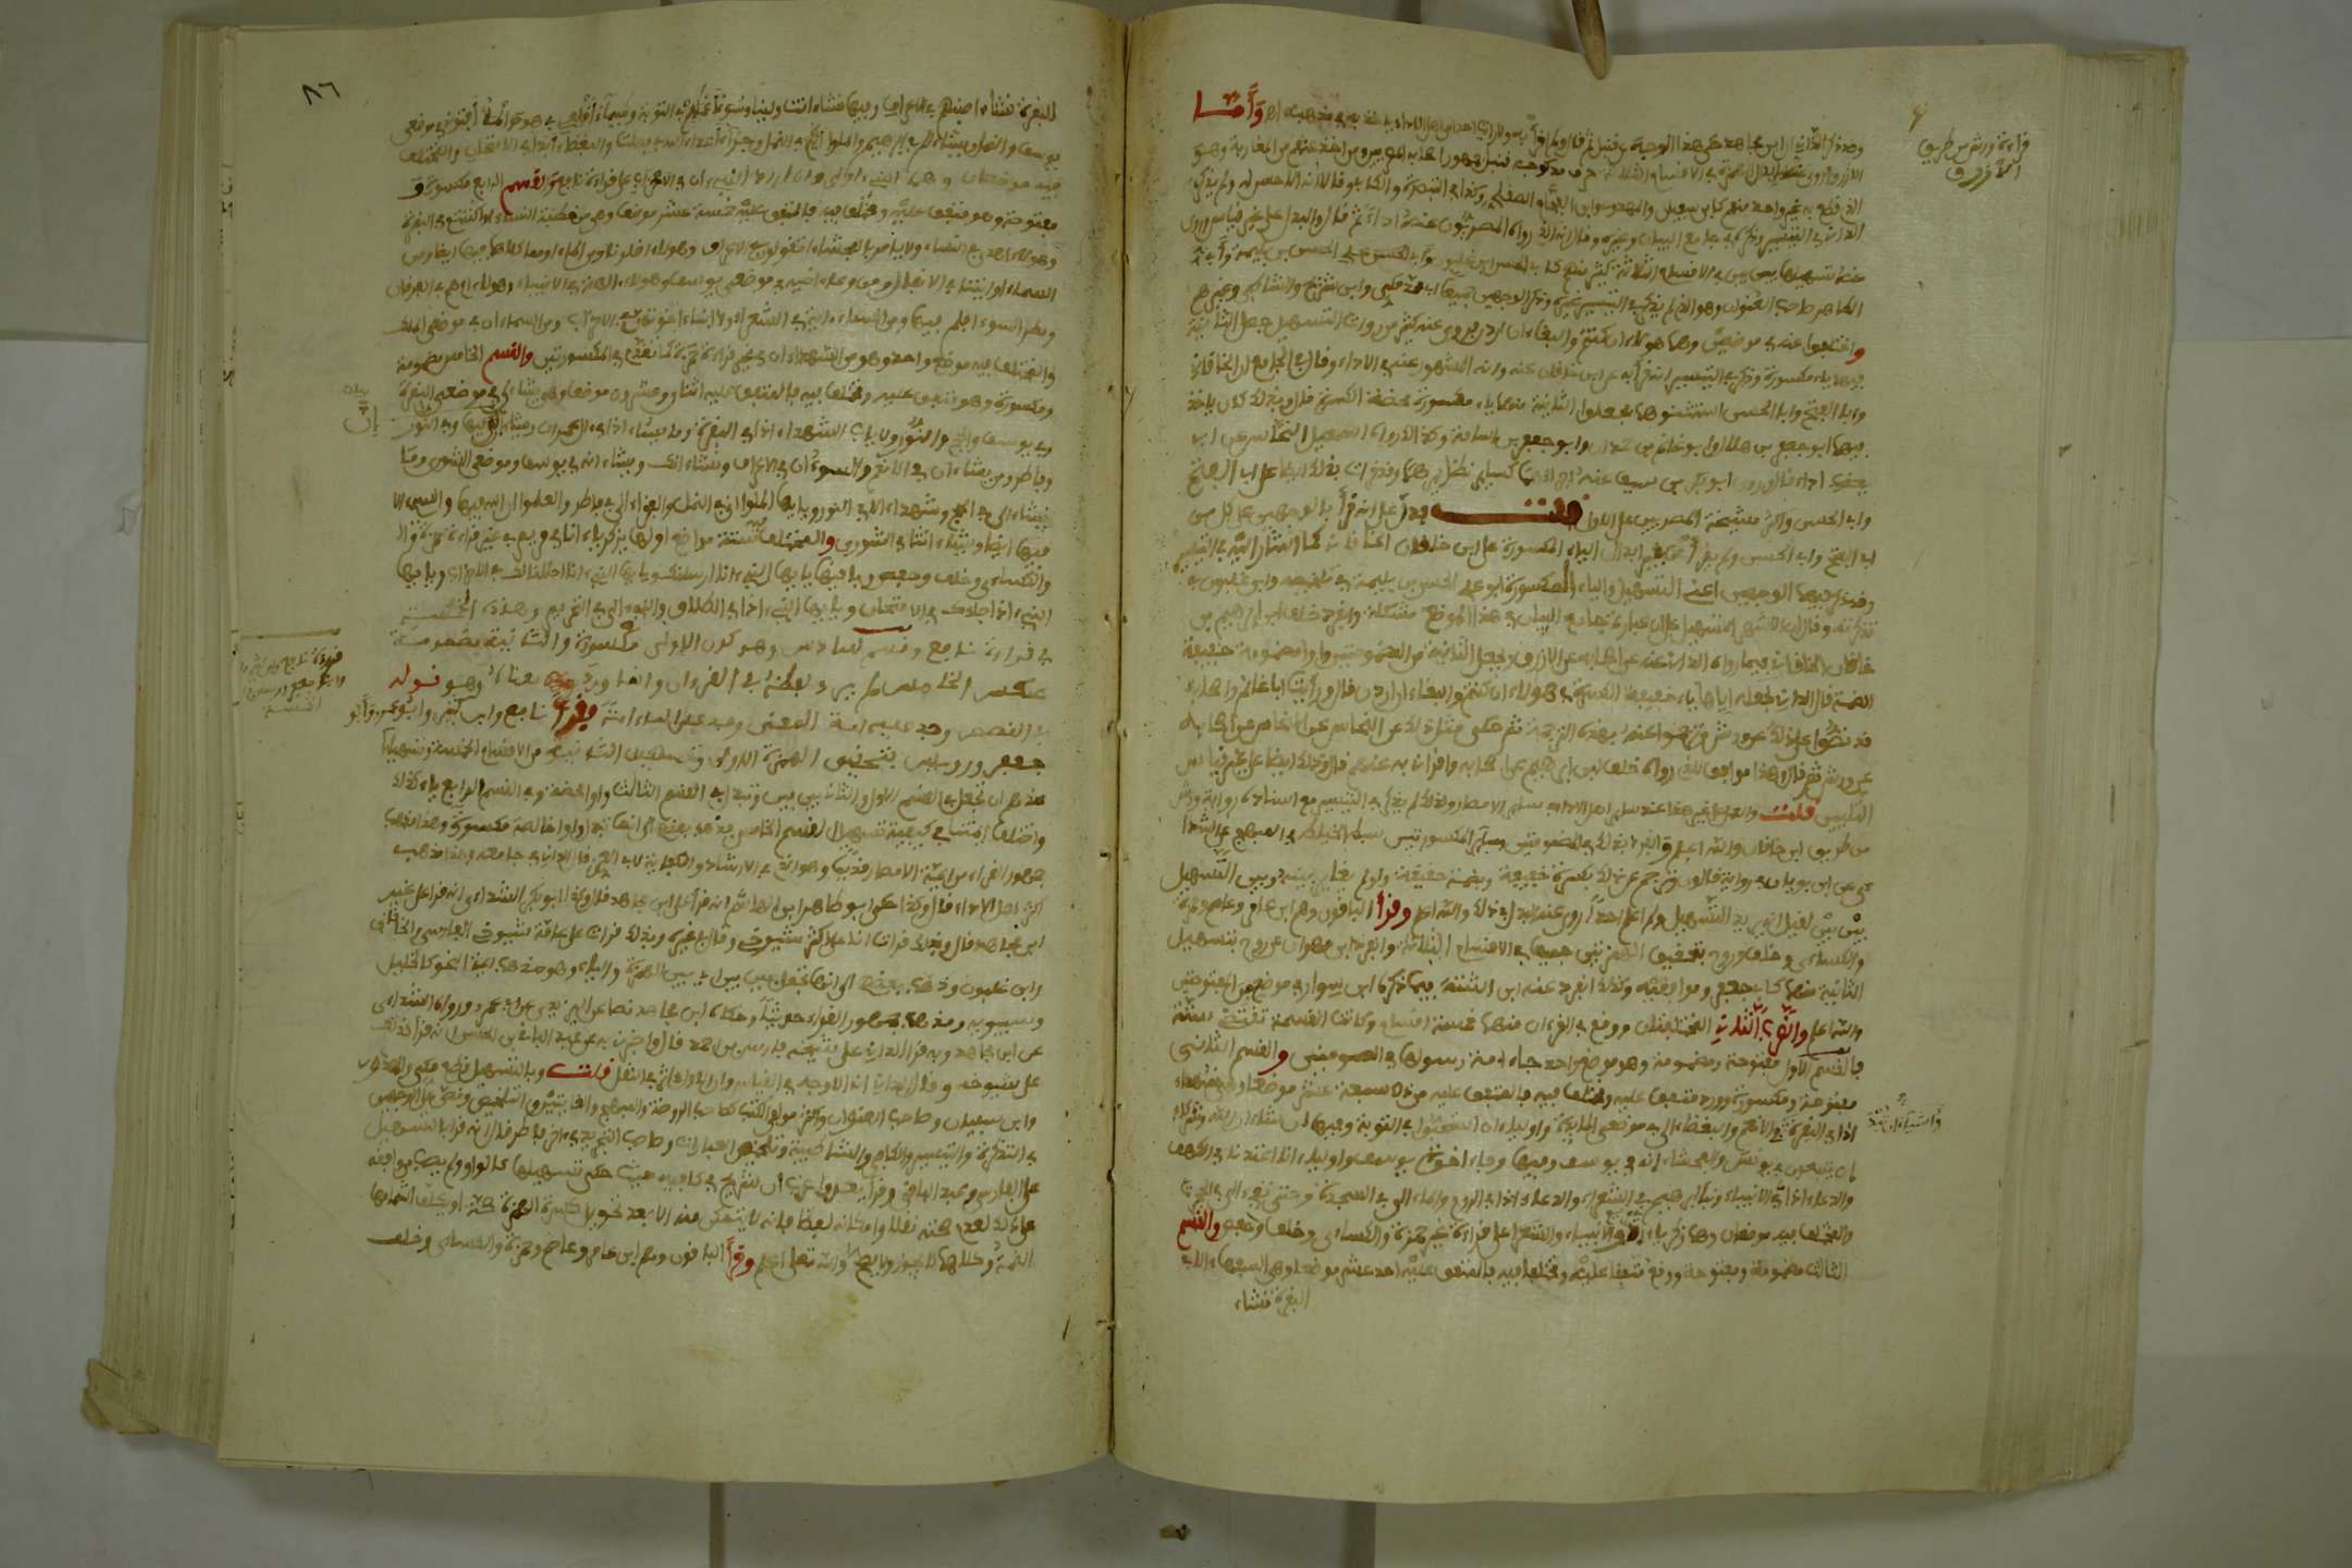 قراءة ورش من طريق
الأزرق
وقد ذكر الداني ان ابن مجاهد حكى هذا الوجه عن قنبل ثم قال ولم اقرأ به ولا رأيت احدا من اهل الاداء ياخذ به في مذهبه اهـ وأما
الازرق فروى عنه ابدال الهمزة في الاقسام الثلاثة حرف مد كوجه قنبل جمهور اصحابه المصريين ومن اخذ عنهم من المغاربة وهو
الذي قطع به غير واحد منهم كابن سفيان والمهدوي وابن الفحام الصقلي وكذا في التبصرة والكافي وقالا انه الاحسن له ولم يذكره
الداني في التيسير وذكره في جامع البيان وغيره وقال انه الذي رواه المصريون عنه اداء ثم قال والبدل على غير قياس وروى
عنه تسهيلها بين بين في الاقسام الثلاثة كثير منهم كابي الحسن ابن غلبون وابي الحسن علي الحسن بن بليمة وابي
الطاهر صاحب العنوان وهو الذي لم يذكر في التيسير غيره وذكر الوجهين جميعا ابو محمد مكي وابن شريح والشاطبي وغيرهم
واختلفوا عنه في موضعين وهما هؤلاء ان كنتم والبغاء ان اردن فروى عنه كثير من رواة التسهيل جعل الثانية
فيهما ياء مكسورة وذكر في التيسير انه قرأ به على ابن خاقان عنه وانه المشهور عنه في الاداء وقال في الجامع ان الخاقاني
وابا الفتح وابا الحسن استثنوهما فجعلوا الثانية منهما ياء مكسورة محضة الكسرة قال وبذلك كان ياخذ
فيهما ابو جعفر بن هلال وابو غانم بن حمدان وابو جعفر بن اسامة وكذا رواه اسمعيل النحاس عن ابي
يعقوب اداء قال وروى ابو بكر بن سيف عنه اجراءهما كسائر نظائرهما وقد قرات بذلك ايضا على ابي الفتح
وابي الحسن واكثر مشيخة المصريين على الاول قلت فدل على انه قرأ بالوجهين على كل من
ابي الفتح وابي الحسن ولم يقرأ بغير ابدال الياء المكسورة على ابن خاقان كما اشار اليه في التيسير
وقد ذكر فيهما الوجهين اعني التسهيل والياء المكسورة ابو علي الحسن بن بليمة في تلخيصه وابن غلبون في
تذكرته وقال ان الاشهر التسهيل على ان عبارة جامع البيان في هذا الموضع مشكلة وانفرد خلف ابن ابراهيم بن
خاقان الخاقاني فيما رواه الداني عنه عن اصحابه عن الازرق بجعل الثانية من المضمومتين واوا مضمومة خفيفة
الضمة قال الداني كجعله اياها ياء خفيفة الكسرة في هؤلاء ان كنتم والبغاء ان اردن قال ورأيت ابا غانم واصحابه
قد نصوا على ذلك عن ورش وترجموا عنه بهذه الترجمة ثم حكى مثل ذلك عن النحاس عن اصحابه
عن ورش ثم قال وهذا موافق للذي رواه خلف ابن ابراهيم عن اصحابه واقراني به عنهم قال وذلك ايضا على غير قياس
التليين قلت والعمل على غير هذا عند سائر اهل الاداء في سائر الامصار ولذلك لم يذكره في التيسير مع اسناده رواية ورش
من طريق ابن خاقان والله اعلم وانفرد بذلك في المضمومتين وسائر المكسورتين سبط الخياط في المبهج عن الشذا
ئي عن ابن بويان في رواية قالون وترجم عن ذلك بكسرة خفيفة وبضمة خفيفة ولو لم يغاير بينه وبين التسهيل
بين بين لقيل انه يريد التسهيل ولم اعلم احدا روى عنه البدل في ذلك والله اعلم وقرأ الباقون وهم ابن عامر وعاصم وحمزة
والكسائي وخلف وروح بتحقيق الهمزتين جميعا في الاقسام الثلاثة وانفرد ابن مهران عن روح بتسهيل
الثانية منهما كابي جعفر وموافقيه وكذلك انفرد عنه ابن اشتة فيما ذكره ابن سوار في موضع من المفتوحتين
والله اعلم والضرب الثاني المختلفتان ووقع في القرءان منهما خمسة اقسام وكانت القسمة تقتضي ستة
فالقسم الاول مفتوحة ومضمومة وهو موضع واحد جاء امة رسولها في المومنين والقسم الثاني
مفتوحة ومكسورة وورد متفق عليه ومختلف فيه فالمتفق عليه من ذلك سبعة عشر موضعا وهي شهداء
اذ في البقرة والانعام والبغضاء الى في موضعي المائدة واولياء ان استحبوا في التوبة وفيها ان شاء ان الله وشركاء
ان يتبعون في يونس والفحشاء انه في يوسف وفيها وجاء اخوة يوسف واولياء انا اعتدنا في الكهف
والدعاء اذا في الانبياء ونبأ ابراهيم في الشعراء والدعاء اذا في الروم والماء الى في السجدة وحتى تفيء الى في الحجرات
والمختلف فيه موضعان وهما زكرياء اذ في الانبياء والشعراء على قراءة غير حمزة والكسائي وخلف وحفص والقسم
الثالث مضمومة ومفتوحة ووقع متفقا عليه ومختلفا فيه فالمتفق عليه احد عشر موضعا وهي السفهاء الا في
البقرة نشاء
٨٦
البقرة نشاء اصبناهم في الاعراف وفيها تشاء انت ولينا وسوء اعمالهم في التوبة وياسماء اقلعي في هود والملأ افتوني في موضعي
يوسف والنمل ويشاء الم في ابراهيم والملؤا ايكم في النمل وجزاء اعداء الله في فصلت والبغضاء ابدا في الامتحان والمختلف
فيه موضعان وهما النبيء اولى وان اراد النبيء ان في الاحزاب على قراءة نافع والقسم الرابع مكسورة و
مفتوحة وهو متفق عليه ومختلف فيه فالمتفق عليه خمسة عشر موضعا وهي من خطبة النساء او اكننتم في البقرة
وهؤلاء اهدى في النساء ولا يامر بالفحشاء اتقولون في الاعراف وهؤلاء اضلونا ومن الماء او مما كلاهما فيها ايضا ومن
السماء او ايتنا في الانفال ومن وعاء اخيه في موضعي يوسف وهؤلاء الهة في الانبياء وهؤلاء ام هم في الفرقان
ومطر السوء افلم فيها ومن السماء اية في الشعراء ولا ابناء اخواتهن في الاحزاب ومن السماء ان في موضعي الملك
والمختلف فيه موضع واحد وهو من الشهداء ان في غير قراءة حمزة كما تقدم في المكسورتين والقسم الخامس مضمومة
ومكسورة وهو متفق عليه ومختلف فيه فالمتفق عليه اثنان وعشرون موضعا وهي يشاء الى في موضعي البقرة
وفي يوسف والحج والنور ولا ياب الشهداء اذا في البقرة وما يشاء اذا في ال عمران ويشاء ان فيها وفي النور
وفاطر ومن نشاء ان في الانعام والسوء ان في الاعراف ونشاء انك ويشاء انه في يوسف وموضعي الشورى وما
نشاء الى في الحج وشهداء الا في النور ويايها الملؤا اني في النمل والفقراء الى في فاطر والعلماؤا ان الله فيها والسيء الا
فيها ايضا ويشاء اناثا في الشورى والمختلف فيه ستة مواضع اولها يا زكرياء انا في مريم في غير قراءة حمزة
والكسائي وخلف وحفص وباقيها يايها النبيء انا ارسلنك ويايها النبيء انا احللنا لك في الاحزاب ويايها
النبيء اذا جاءك في الامتحان ويايها النبيء اذا في الطلاق والنبيء الى في التحريم وهذه الخمسة
في قراءة نافع وقسم سادس وهو كون الاولى مكسورة والثانية مضمومة
عكس الخامس لم يرد لفظه في القرءان وانما ورد معناه وهو قوله
في القصص وجد عليه امة والمعنى وجد على الماء امة وقرأ نافع وابن كثير وابو عمرو وابو
جعفر ورويس بتحقيق الهمزة الاولى وتسهيل الثانية من الاقسام الخمسة وتسهيلها
عندهم ان تجعل في القسم الاول والثاني بين بين وتبدل في القسم الثالث واوا محضة وفي القسم الرابع ياء كذلك
واختلف ائمتنا في كيفية تسهيل القسم الخامس فذهب بعضهم الى انها تبدل واوا خالصة مكسورة وهذا مذهب
جمهور القراء من ائمة الامصار قديما وهو الذي في الارشاد والكفاية لابي العز قال الداني في جامعه وهذا مذهب
اكثر اهل الاداء قال وكذا حكى ابو طاهر ابن ابي هاشم انه قرأ على ابن مجاهد قال وكذا حكى ابو بكر الشذائي انه قرأ على غير
ابن مجاهد قال وبذلك قرات انا على اكثر شيوخي وقال في غيره وبذلك قرات على عامة شيوخي الفارسي والخاقاني
وابن غلبون وذهب بعضهم الى انها تجعل بين بين اي بين الهمزة والياء وهو مذهب ائمة النحو كالخليل
وسيبويه ومذهب جمهور القراء حديثا وحكاه ابن مجاهد نصا عن اليزيدي عن ابي عمرو ورواه الشذائي
عن ابن مجاهد وبه قرأ الداني على شيخه فارس بن احمد قال واخبرني به عن عبد الباقي بن الحسن انه قرأ كذلك
على شيوخه وقال الداني انه الاوجه في القياس وان الاول اثر في النقل قلت وبالتسهيل قطع مكي والمهدوي
وابن سفيان وصاحب العنوان واكثر مولفي الكتب كصاحب الروضة والمبهج والغايتين والتلخيص ونص على الوجهين
في التذكرة والتيسير والكافي والشاطبية وتلخيص العبارات وصاحب التجريد في اخر فاطر قال انه قرأ بالتسهيل
على الفارسي وعبد الباقي وقرأ بعدوا غرب ان شريح في كافيه حيث حكى تسهيلها كالواو ولم يصب من وافقه
على ذلك لعدم صحته نقلا وامكانه لفظا فانه لا يتمكن منه الا بعد تحويل كسرة الهمزة ضمة او تكلف اشمامها
الضم وكلاهما لا يجوز ولا يصح والله تعلى اعلم وقرأ الباقون وهم ابن عامر وعاصم وحمزة والكسائي وخلف